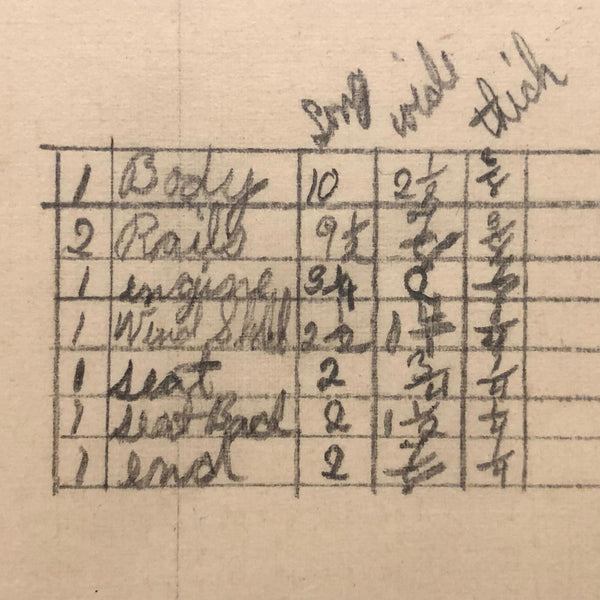 long wide thick
1 Body 10 2 1/2
2 Rails 9 1/2
1 engine 3 1/4
1 Wind 2 1/2 1
1 seat 2 3/4 1/4
1 seat Back 2 1 1/2 1/4
1 end 2 1/4